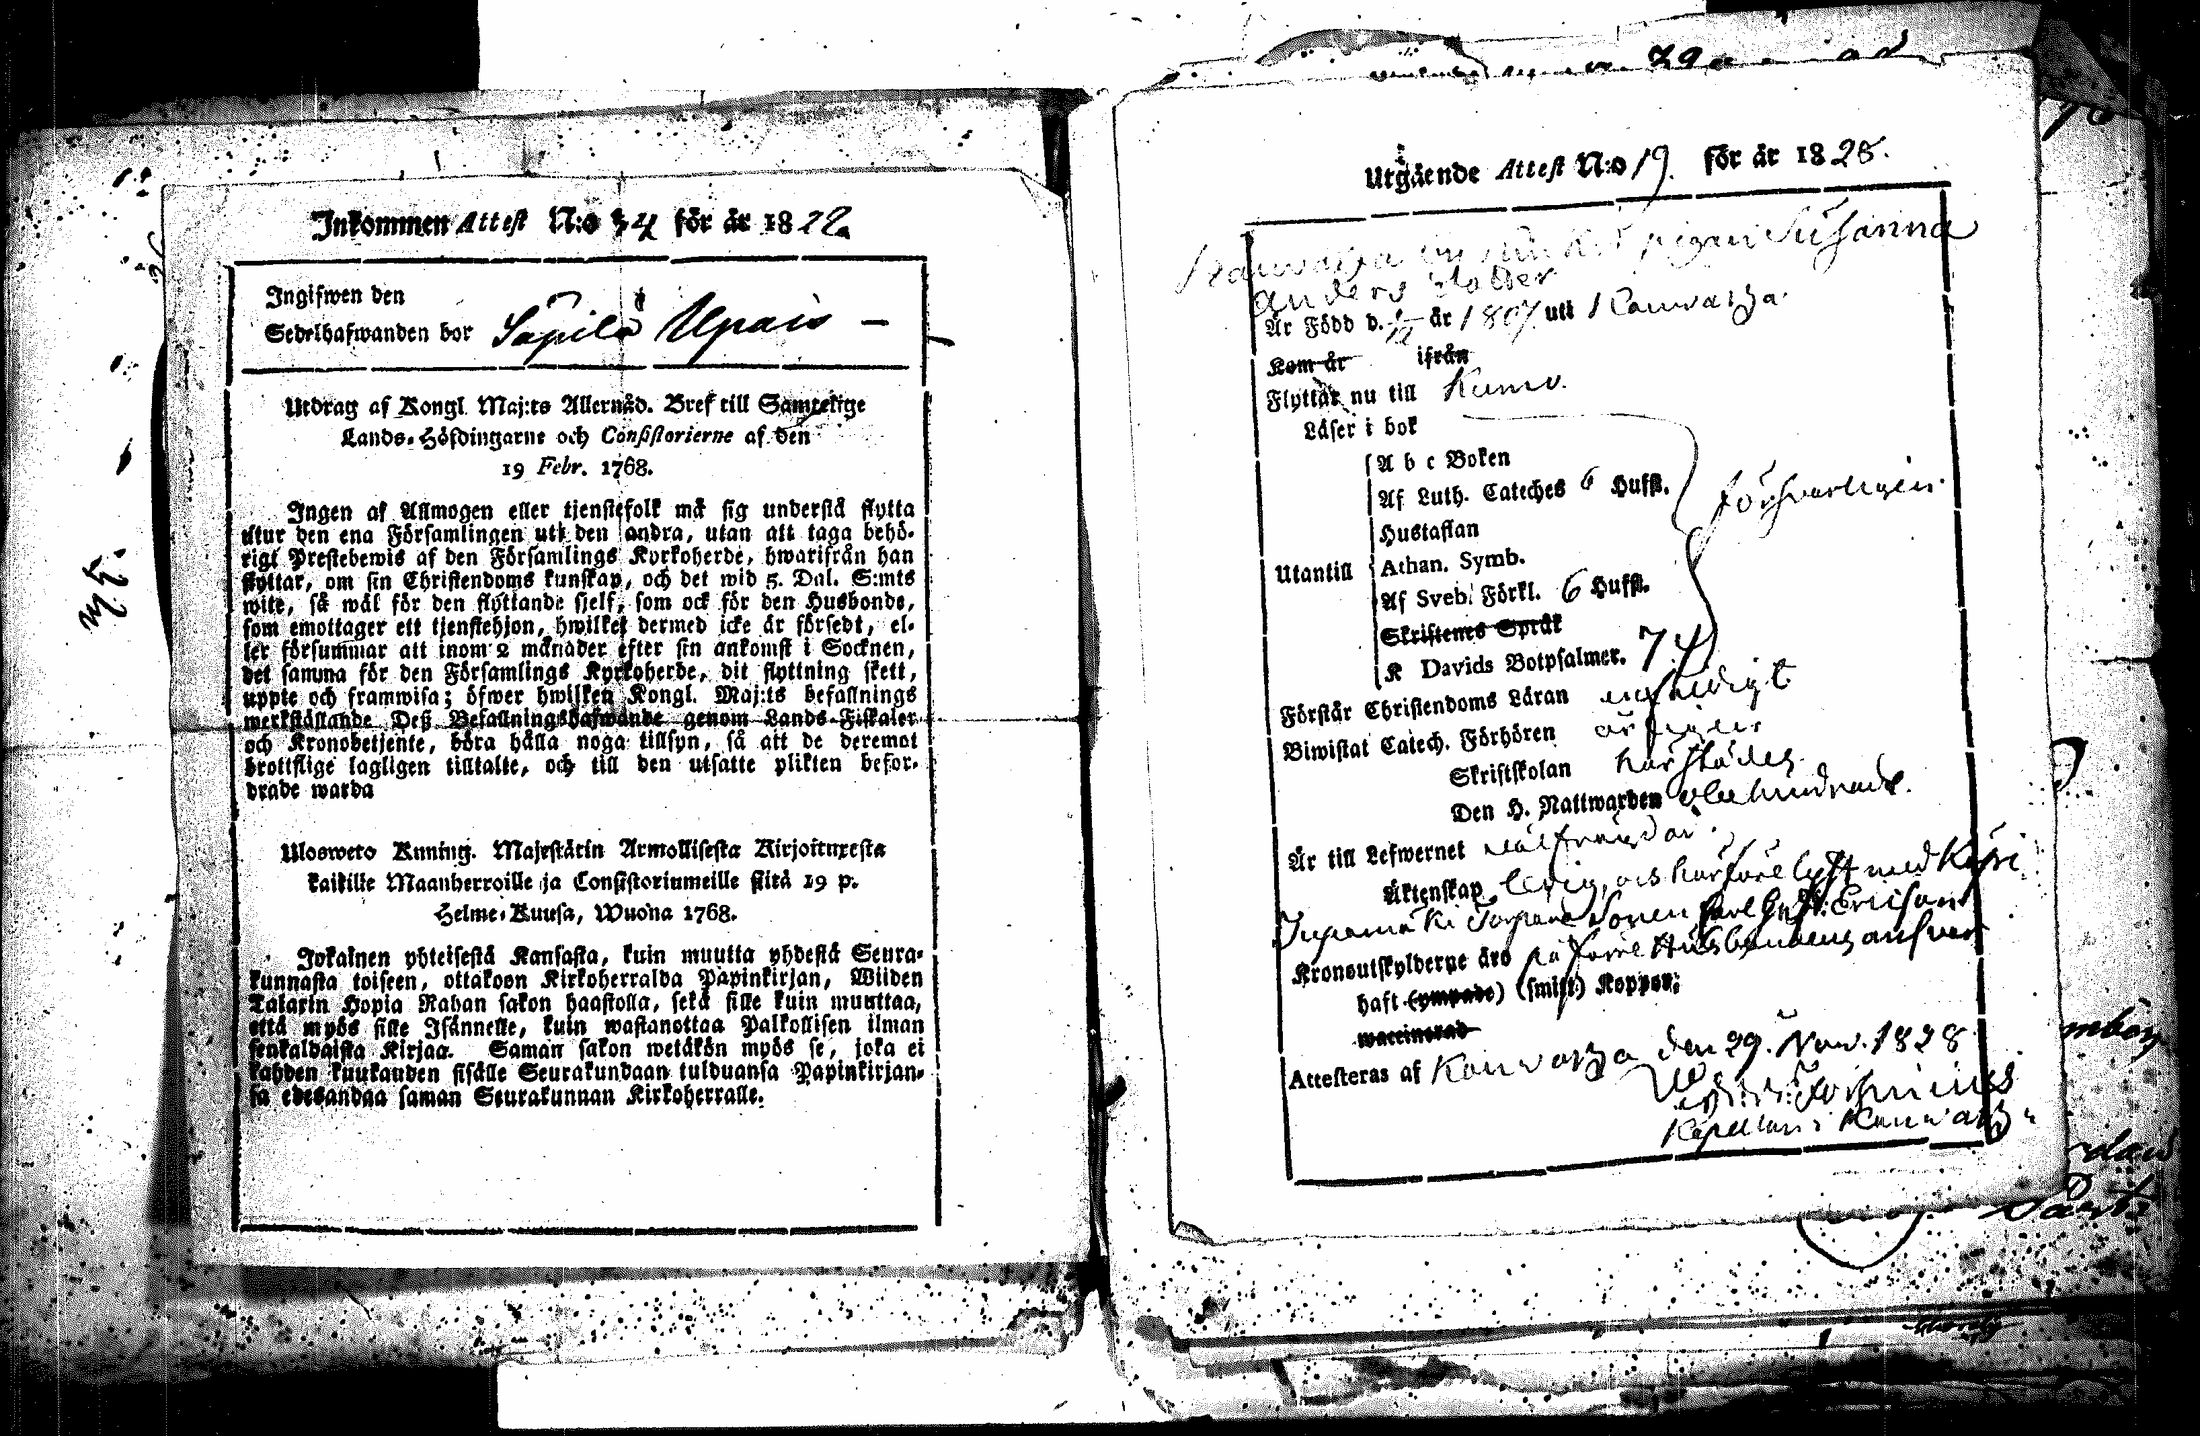 Inkommen Attest N:o 34 för år 1822
Ingifwen den
Sedelhafwanden bor Säpilä Upais –
Utdrag af Kongl. Maj:ts Allernåd. Bref till Samtelige
Lands-Höfdingarne och Consistorierne af den
19 Febr. 1768.
Ingen af Allmogen eller tjenstefolk må sig understå flytta
utur den ena Församlingen uti den andra, utan att taga behö-
rigt Prestebewis af den Församlings Kyrkoherde, hwarifrån han
flyttar, om sin Christendoms kunskap, och det wid 5. Dal. S:mts
wite, så wäl för den flyttande sjelf, som ock för den Husbonde,
som emottager ett tjenstehjon, hwilket dermed icke är försedt, el-
ler försummar att inom 2 månader efter sin ankomst i Socknen,
det samma för den Församlings Kyrkoherde, dit flyttning skett,
uppte och framwisa; öfwer hwilken Kongl. Maj:ts befallnings
werkställande Deß Befallningshafwande genom Lands-Fiskaler
och Kronobetjente, böra hålla noga tillsyn, så att de deremot
brottslige lagligen tilltalte, och till den utsatte plikten befor-
drade warda
Ulosweto Kuning. Majestätin Armollisesta Kirjoituxesta
kaikille Maanherroille ja Consistoriumeille siitä 19 p.
Helme-Kuusa, Wuona 1768.
Jokainen yhteisestä Kansasta, kuin muutta yhdestä Seura-
kunnasta toiseen, ottakoon Kirkoherralda Papinkirjan, Wiiden
Talarin Hopia Rahan sakon haastolla, sekä sille kuin muuttaa,
että myös sille Isännelle, kuin wastanottaa Palkollisen ilman
senkaldaista Kirjaa. Saman sakon wetäkön myös se, joka ei
kahden kuukauden sisälle Seurakundaan tulduansa Papinkirjan-
sa edesandaa saman Seurakunnan Kirkoherralle.
Utgående Attest N:o 19. för år 1828.
pigan Susanna
Anders dotter
Är Född d. år 1807 uti Kauvatza
Kom år ifrån
Flyttar nu till Kumo.
Läser i bok
A b c Boken
Af Luth. Cateches 6 Hufst. försvarligen
Hustaflan
Utantill Athan. Symb.
Af Sveb. Förkl. 6 Hufst.
Skriftenes Språk
K Davids Botpsalmer. 7
Förstår Christendoms Läran
Biwistat Catech. Förhören
Skriftskolan härstädes
Den H. Nattwarden
Är till Lefwernet välfrägdar.
Äktenskap ledig, och har före lyst med
Torpare Sonen Carl Gust. Ericson
Kronoutskylderne äro på förre Husbondens answar
haft (ympade) (smitt.) Koppor;
waccinerad
Attesteras af Kauvatza den 29. Nov. 1828
Capellan i Kauvatza